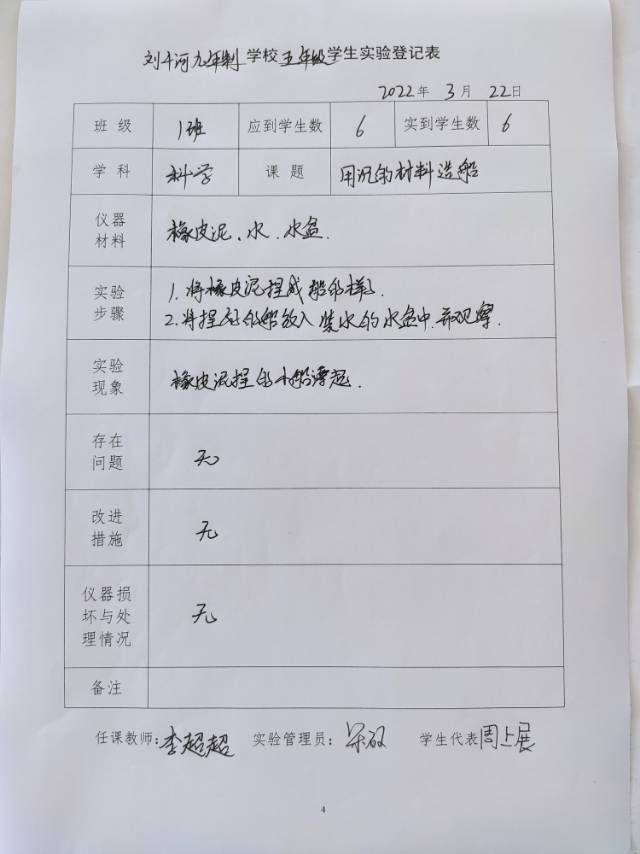 刘千河九年制学校五年级学生实验登记表
2022年 3月 22日
班级 1班 应到学生数 6 实到学生数 6
学科 科学 课题 用沉的材料造船
仪器材料 橡皮泥、水、水盆.
实验步骤 1. 将橡皮泥捏成船的样.
2. 将捏好的船放入装水的水盆中.并观察.
实验现象 橡皮泥捏的小船漂起.
存在问题 无
改进措施 无
仪器损坏与处理情况 无
备注
任课教师: 李超超 实验管理员: 学生代表 周上展
4